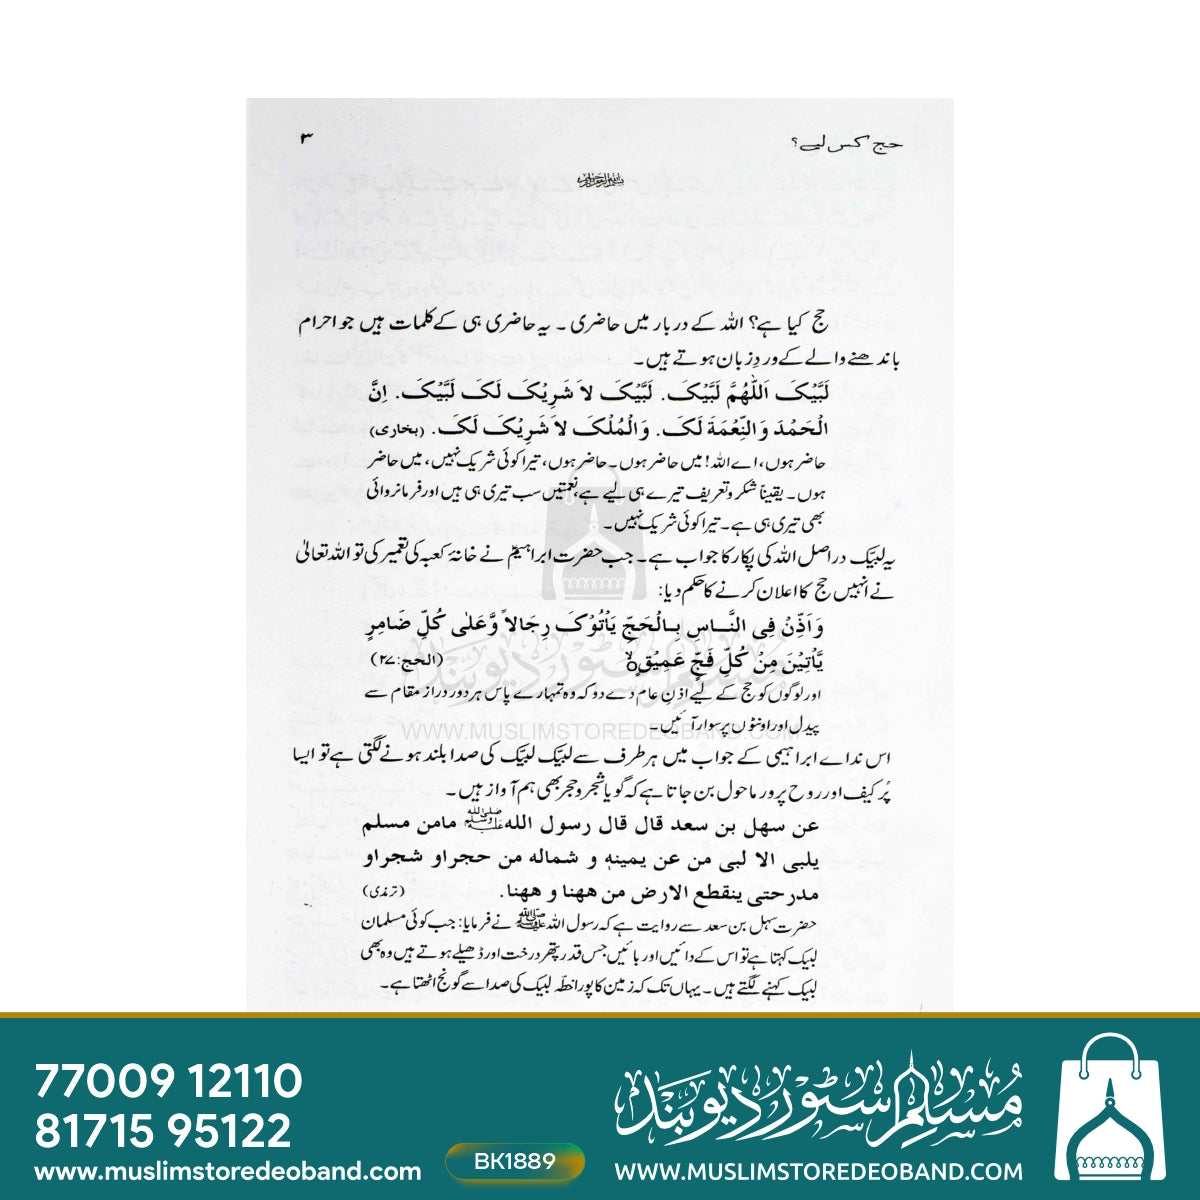 حج کس لیے؟ ۳
بسم اللہ الرحمن الرحیم
حج کیا ہے؟ اللہ کے دربار میں حاضری ۔ یہ حاضری ہی کے کلمات ہیں جو احرام
باندھنے والے کے وردِ زبان ہوتے ہیں۔
لَبَّیْکَ اَللّٰهُمَّ لَبَّیْکَ. لَبَّیْکَ لاَ شَرِیْکَ لَکَ لَبَّیْکَ. اِنَّ
الْحَمْدَ وَالنِّعْمَةَ لَکَ. وَالْمُلْکَ لاَ شَرِیْکَ لَکَ. (بخاری)
حاضر ہوں، اے اللہ! میں حاضر ہوں۔ حاضر ہوں، تیرا کوئی شریک نہیں، میں حاضر
ہوں۔ یقیناً شکر و تعریف تیرے ہی لیے ہے، نعمتیں سب تیری ہی ہیں اور فرمانروائی
بھی تیری ہی ہے۔ تیرا کوئی شریک نہیں۔
یہ لبیّک دراصل اللہ کی پکار کا جواب ہے۔ جب حضرت ابراہیمؑ نے خانۂ کعبہ کی تعمیر کی تو اللہ تعالیٰ
نے انہیں حج کا اعلان کرنے کا حکم دیا:
وَاَذِّنْ فِی النَّاسِ بِالْحَجِّ یَاْتُوْکَ رِجَالاً وَّعَلٰی کُلِّ ضَامِرٍ
یَّاْتِیْنَ مِنْ کُلِّ فَجٍّ عَمِیْقٍ (الحج:۲۷)
اور لوگوں کو حج کے لیے اذنِ عام دے دو کہ وہ تمہارے پاس ہر دور دراز مقام سے
پیدل اور اونٹوں پر سوار آئیں۔
اس نداے ابراہیمی کے جواب میں ہر طرف سے لبیّک لبیّک کی صدا بلند ہونے لگتی ہے تو ایسا
پُر کیف اور روح پرور ماحول بن جاتا ہے کہ گویا شجر و حجر بھی ہم آواز ہیں۔
عن سهل بن سعد قال قال رسول الله ﷺ مامن مسلم
یلبی الا لبی من عن یمینه و شماله من حجر او شجر او
مدر حتی ینقطع الارض من ههنا و ههنا. (ترمذی)
حضرت سہل بن سعد سے روایت ہے کہ رسول اللہ ﷺ نے فرمایا: جب کوئی مسلمان
لبیک کہتا ہے تو اس کے دائیں اور بائیں جس قدر پتھر درخت اور ڈھیلے ہوتے ہیں وہ بھی
لبیک کہنے لگتے ہیں۔ یہاں تک کہ زمین کا پورا خطّہ لبیک کی صدا سے گونج اٹھتا ہے۔
مسلم سٹور دیوبند
WWW.MUSLIMSTOREDEOBAND.COM
77009 12110
81715 95122
www.muslimstoredeoband.com
BK1889
مسلم سٹور دیوبند
WWW.MUSLIMSTOREDEOBAND.COM